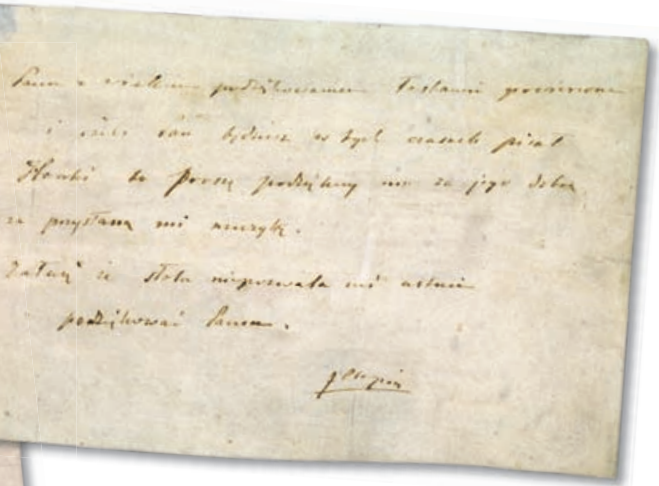 Panu z wielkiem podziękowaniem
i jeżeli Pan będziesz w tych czasach pisał
to proszę podziękuj mu za jego dobre
za przysłaną mi muzykę.
Żałuję że słota niepozwala mi ustnie
podziękować Panu.
Chopin